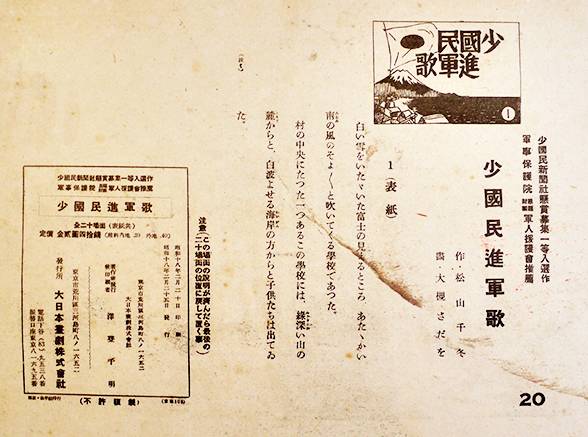 少國民進軍歌
1
少國民新聞社懸賞募集一等入選作
軍事保護院 財團法人 軍人援護會推薦
少國民進軍歌
作・松山千冬
畫・大槻さだを
20
1(表紙)
白い雪をいたゞいた富士の見えるところ、あたゝかい
南の風のそよ〳〵と吹いてくる學校であつた。
村の中央にたつた一つあるこの學校には、綠深い山の
麓からと、白波よせる海岸の方からと子供たちは出てゐ
た。
注意(この場面の説明が濟んだら最後の
二十場面の位置に戻して置く事)
少國民新聞社懸賞募集一等入選作
軍事保護院 軍人援護會推薦
少國民進軍歌
全二十場面(表紙共)
定價 金貳圓四拾錢
昭和十八年二月二十日印刷
昭和十八年二月二十五日發行
東京市荒川區三河島町八ノ一六五二
大日本畫劇株式會社
東京市荒川區三河島町八ノ一六五二
發行所 大日本畫劇株式會社
振替口座東京八一六九五番
(不許複製)